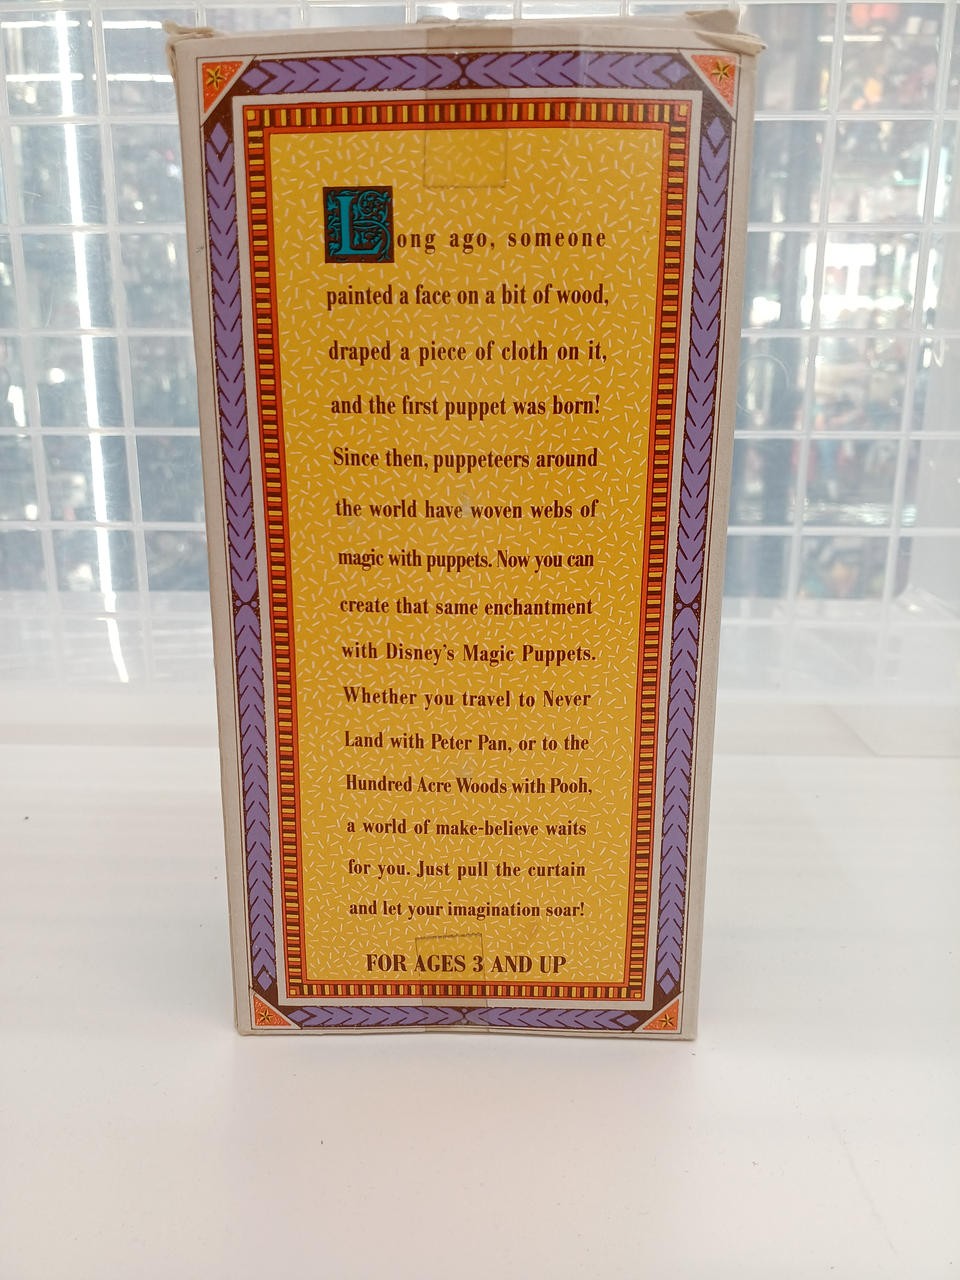 Long ago, someone
painted a face on a bit of wood,
draped a piece of cloth on it,
and the first puppet was born!
Since then, puppeteers around
the world have woven webs of
magic with puppets. Now you can
create that same enchantment
with Disney's Magic Puppets.
Whether you travel to Never
Land with Peter Pan, or to the
Hundred Acre Woods with Pooh,
a world of make-believe waits
for you. Just pull the curtain
and let your imagination soar!
FOR AGES 3 AND UP